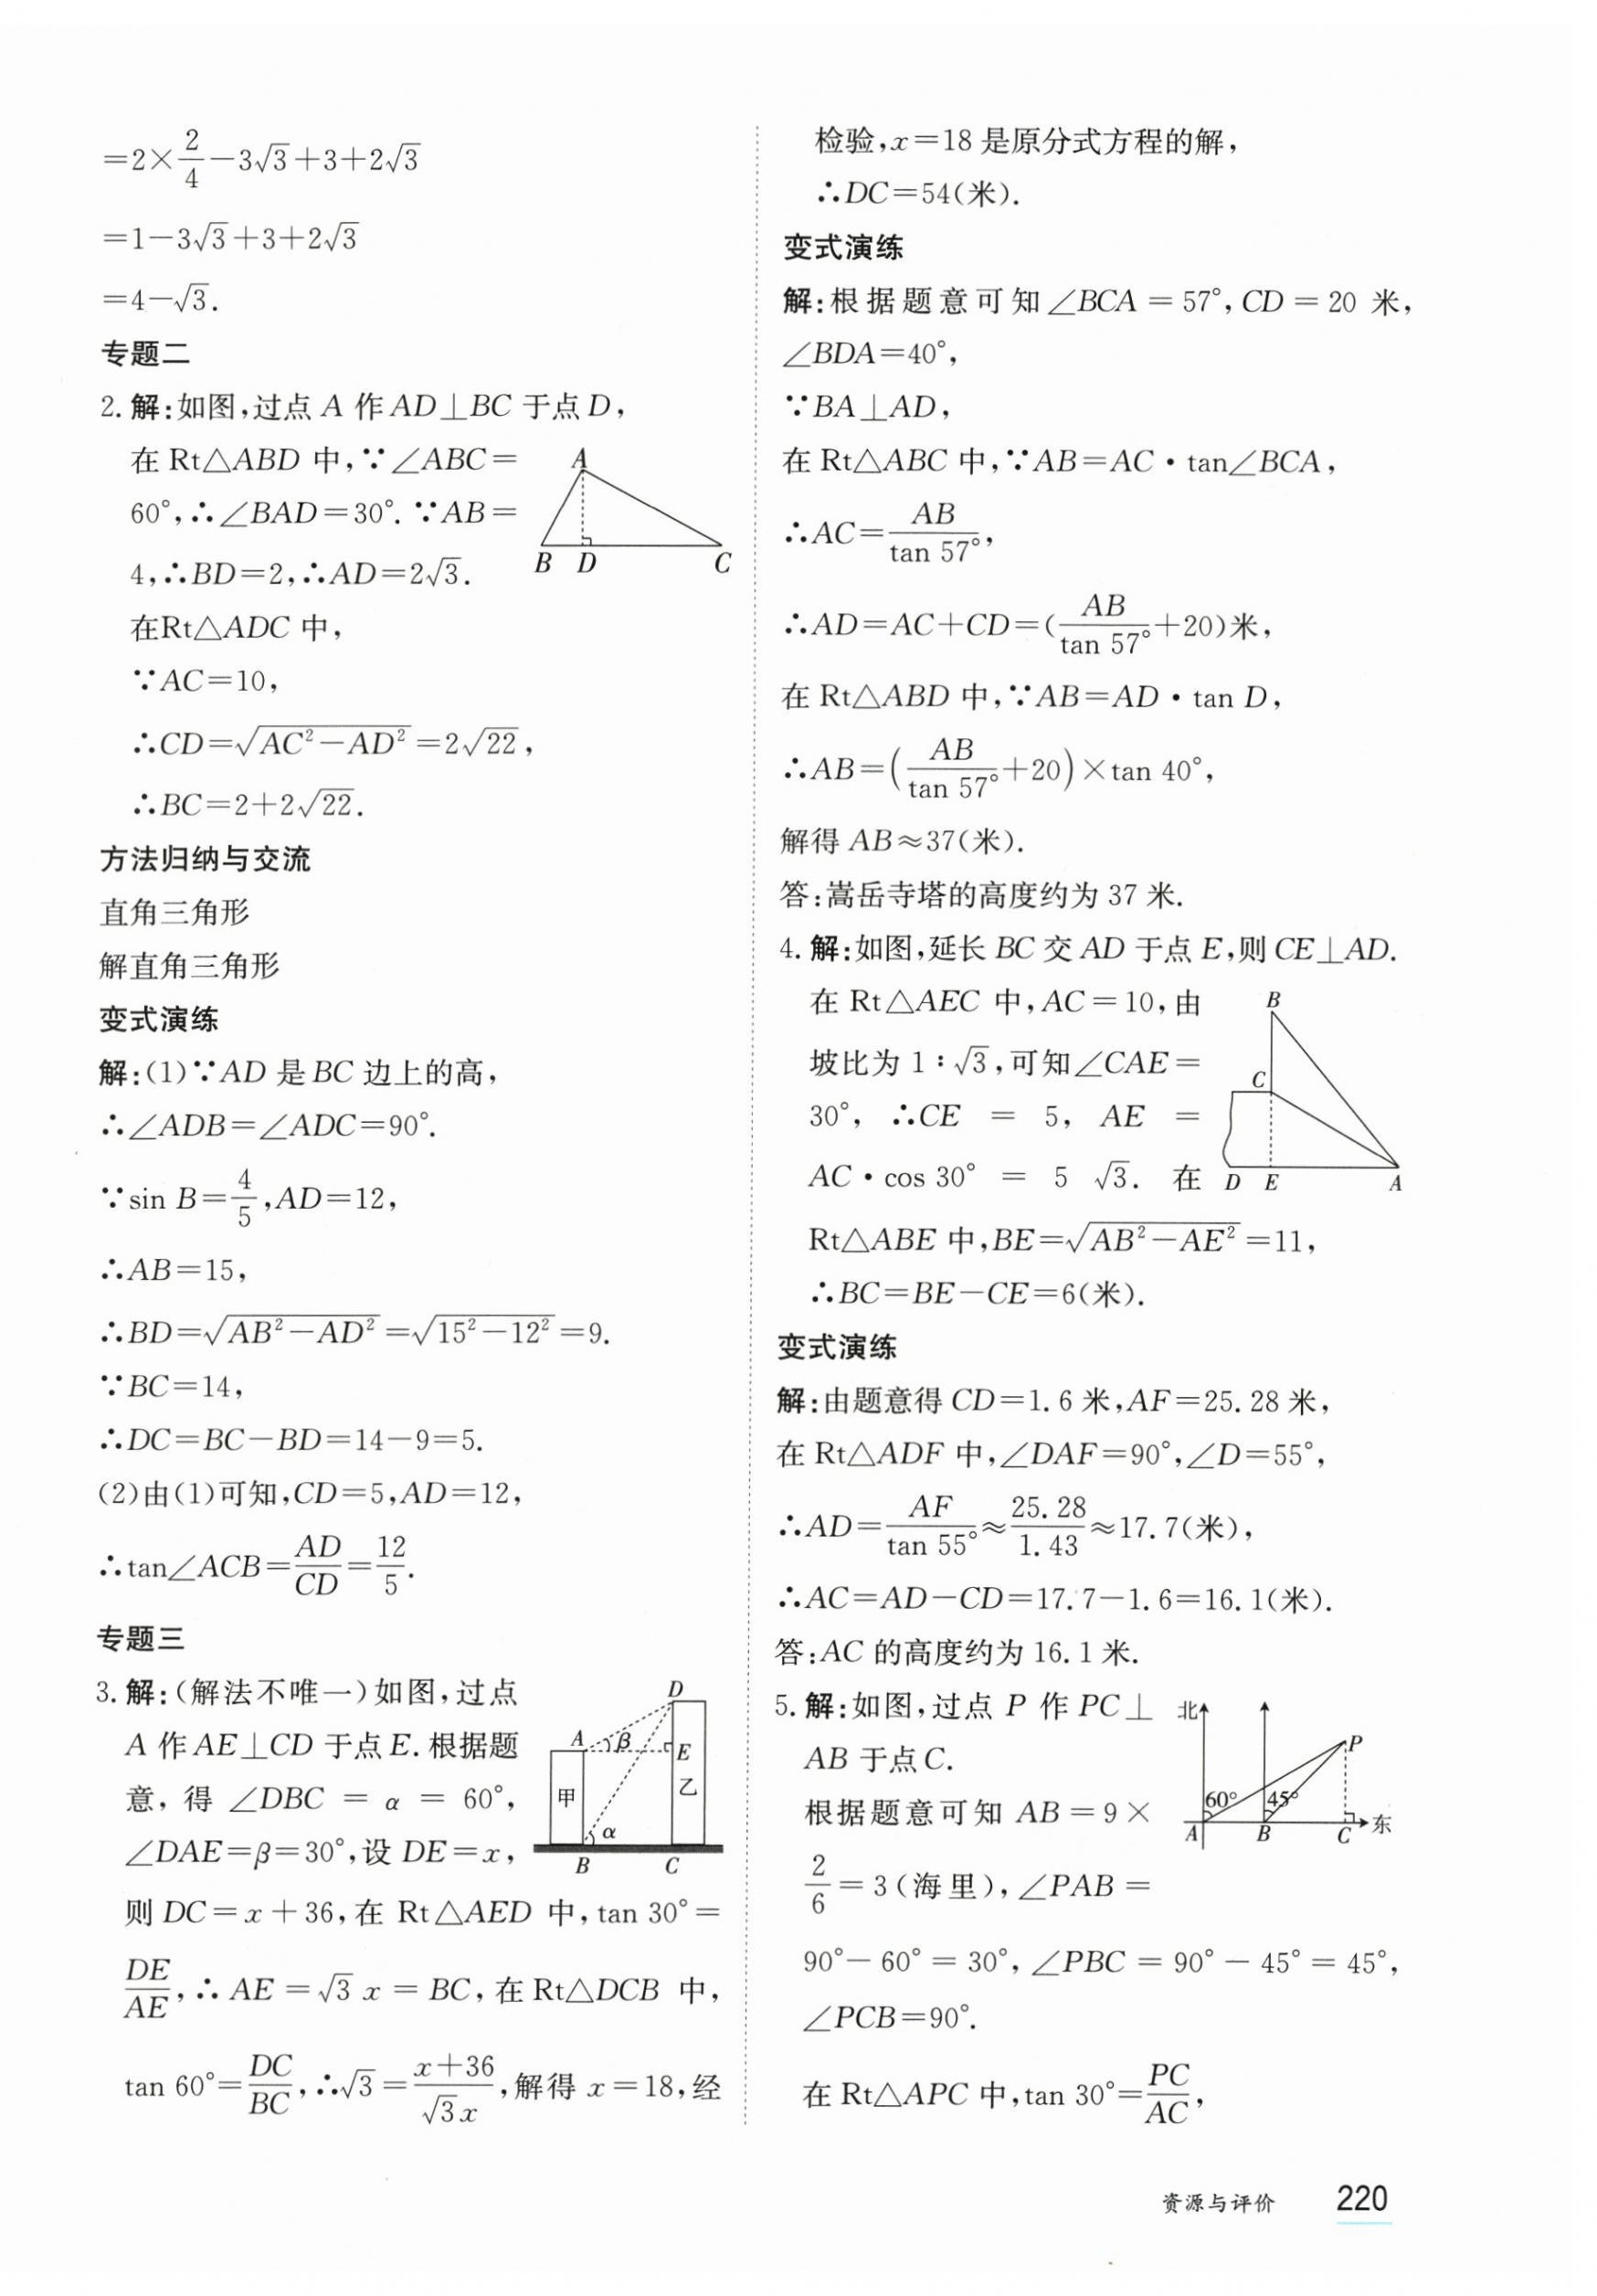 =2×2/4-3√3+3+2√3
=1-3√3+3+2√3
=4-√3.
专题二
2. 解:如图,过点 A 作 AD⊥BC 于点 D,
在 Rt△ABD 中,∵∠ABC=
60°,∴∠BAD=30°. ∵AB=
4,∴BD=2,∴AD=2√3.
A
B D C
在Rt△ADC 中,
∵AC=10,
∴CD=√(AC²-AD²)=2√22,
∴BC=2+2√22.
方法归纳与交流
直角三角形
解直角三角形
变式演练
解:(1)∵AD 是 BC 边上的高,
∴∠ADB=∠ADC=90°.
∵sin B=4/5,AD=12,
∴AB=15,
∴BD=√(AB²-AD²)=√(15²-12²)=9.
∵BC=14,
∴DC=BC-BD=14-9=5.
(2)由(1)可知,CD=5,AD=12,
∴tan∠ACB=AD/CD=12/5.
专题三
3. 解:(解法不唯一)如图,过点
A 作 AE⊥CD 于点 E. 根据题
意, 得 ∠DBC = α = 60°,
∠DAE=β=30°,设 DE=x,
D
A β E
甲 乙
α
B C
则 DC=x+36,在 Rt△AED 中,tan 30°=
DE/AE,∴ AE=√3 x=BC,在 Rt△DCB 中,
tan 60°=DC/BC,∴√3=(x+36)/(√3x),解得 x=18,经
检验,x=18 是原分式方程的解,
∴DC=54(米).
变式演练
解:根据题意可知∠BCA=57°,CD=20 米,
∠BDA=40°,
∵BA⊥AD,
在 Rt△ABC 中,∵AB=AC·tan∠BCA,
∴AC=AB/tan 57°,
∴AD=AC+CD=(AB/tan 57°+20)米,
在 Rt△ABD 中,∵AB=AD·tan D,
∴AB=(AB/tan 57°+20)×tan 40°,
解得 AB≈37(米).
答:嵩岳寺塔的高度约为 37 米.
4. 解:如图,延长 BC 交 AD 于点 E,则 CE⊥AD.
在 Rt△AEC 中,AC=10,由
坡比为 1∶√3,可知∠CAE=
30°, ∴CE = 5, AE =
AC·cos 30° = 5 √3. 在
B
C
D E A
Rt△ABE 中,BE=√(AB²-AE²)=11,
∴BC=BE-CE=6(米).
变式演练
解:由题意得 CD=1.6 米,AF=25.28 米,
在 Rt△ADF 中,∠DAF=90°,∠D=55°,
∴AD=AF/tan 55°≈25.28/1.43≈17.7(米),
∴AC=AD-CD=17.7-1.6=16.1(米).
答:AC 的高度约为 16.1 米.
5. 解:如图,过点 P 作 PC⊥
AB 于点 C.
根据题意可知 AB=9×
2/6=3(海里),∠PAB=
北
P
60° 45°
A B C 东
90°-60°=30°,∠PBC=90°-45°=45°,
∠PCB=90°.
在 Rt△APC 中,tan 30°=PC/AC,
资源与评价 220